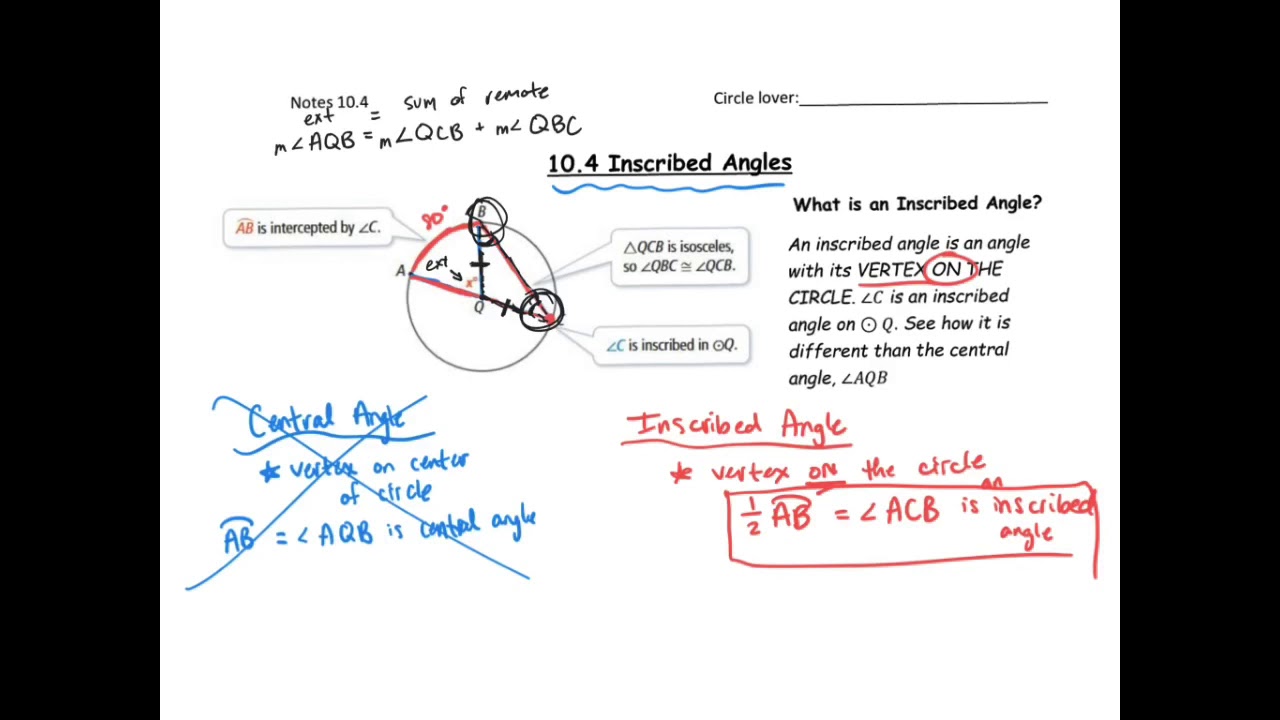 Notes 10.4
ext = sum of remote
m∠AQB = m∠QCB + m∠QBC
Circle lover:
10.4 Inscribed Angles
What is an Inscribed Angle?
AB is intercepted by ∠C.
80°
B
A
ext
x°
Q
△QCB is isosceles,
so ∠QBC ≅ ∠QCB.
∠C is inscribed in ⊙Q.
An inscribed angle is an angle
with its VERTEX ON THE
CIRCLE. ∠C is an inscribed
angle on ⊙ Q. See how it is
different than the central
angle, ∠AQB
Central Angle
* vertex on center
of circle
AB = ∠AQB is central angle
Inscribed Angle
* vertex ON the circle
an
1/2 AB = ∠ACB is inscribed
angle